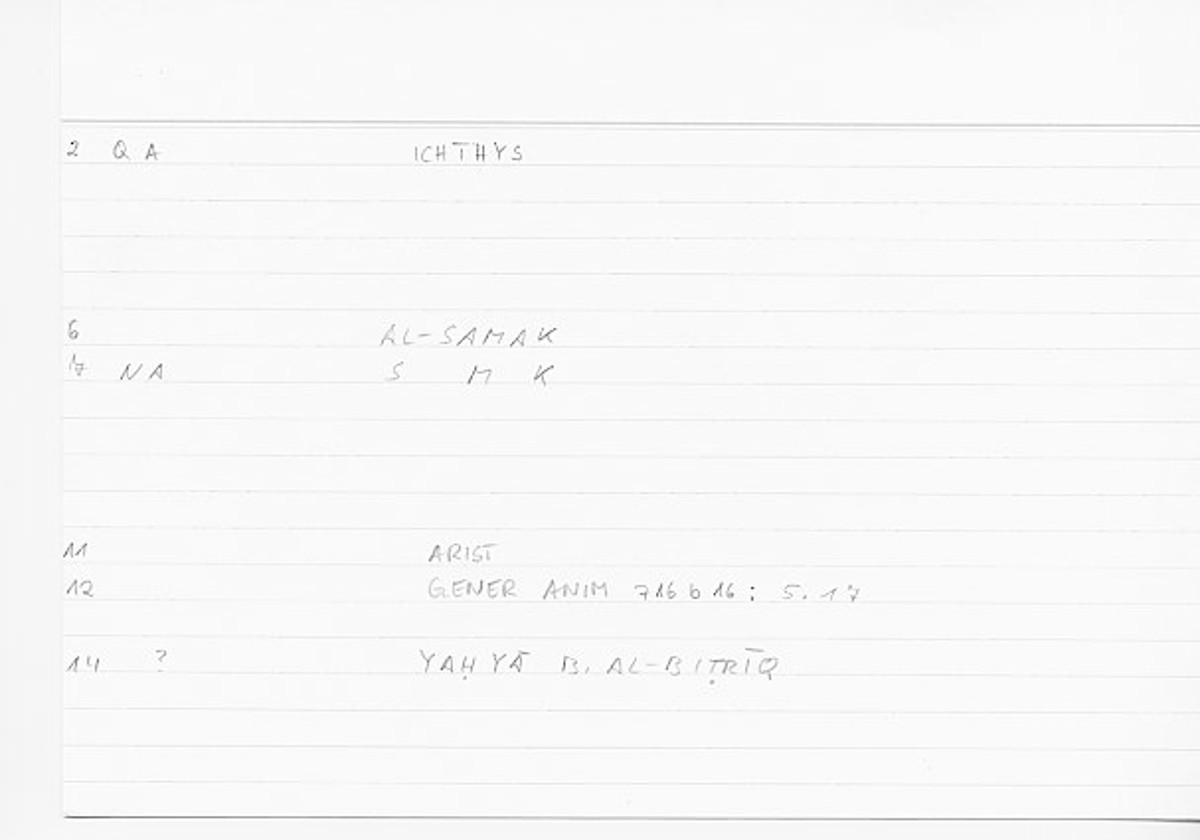 2 Q A ICHTHYS
6 AL-SAMAK
7 NA S M K
11 ARIST
12 GENER ANIM 716 b 16 : 5. 17
14 ? YAḤYĀ B. AL-BIṬRĪQ